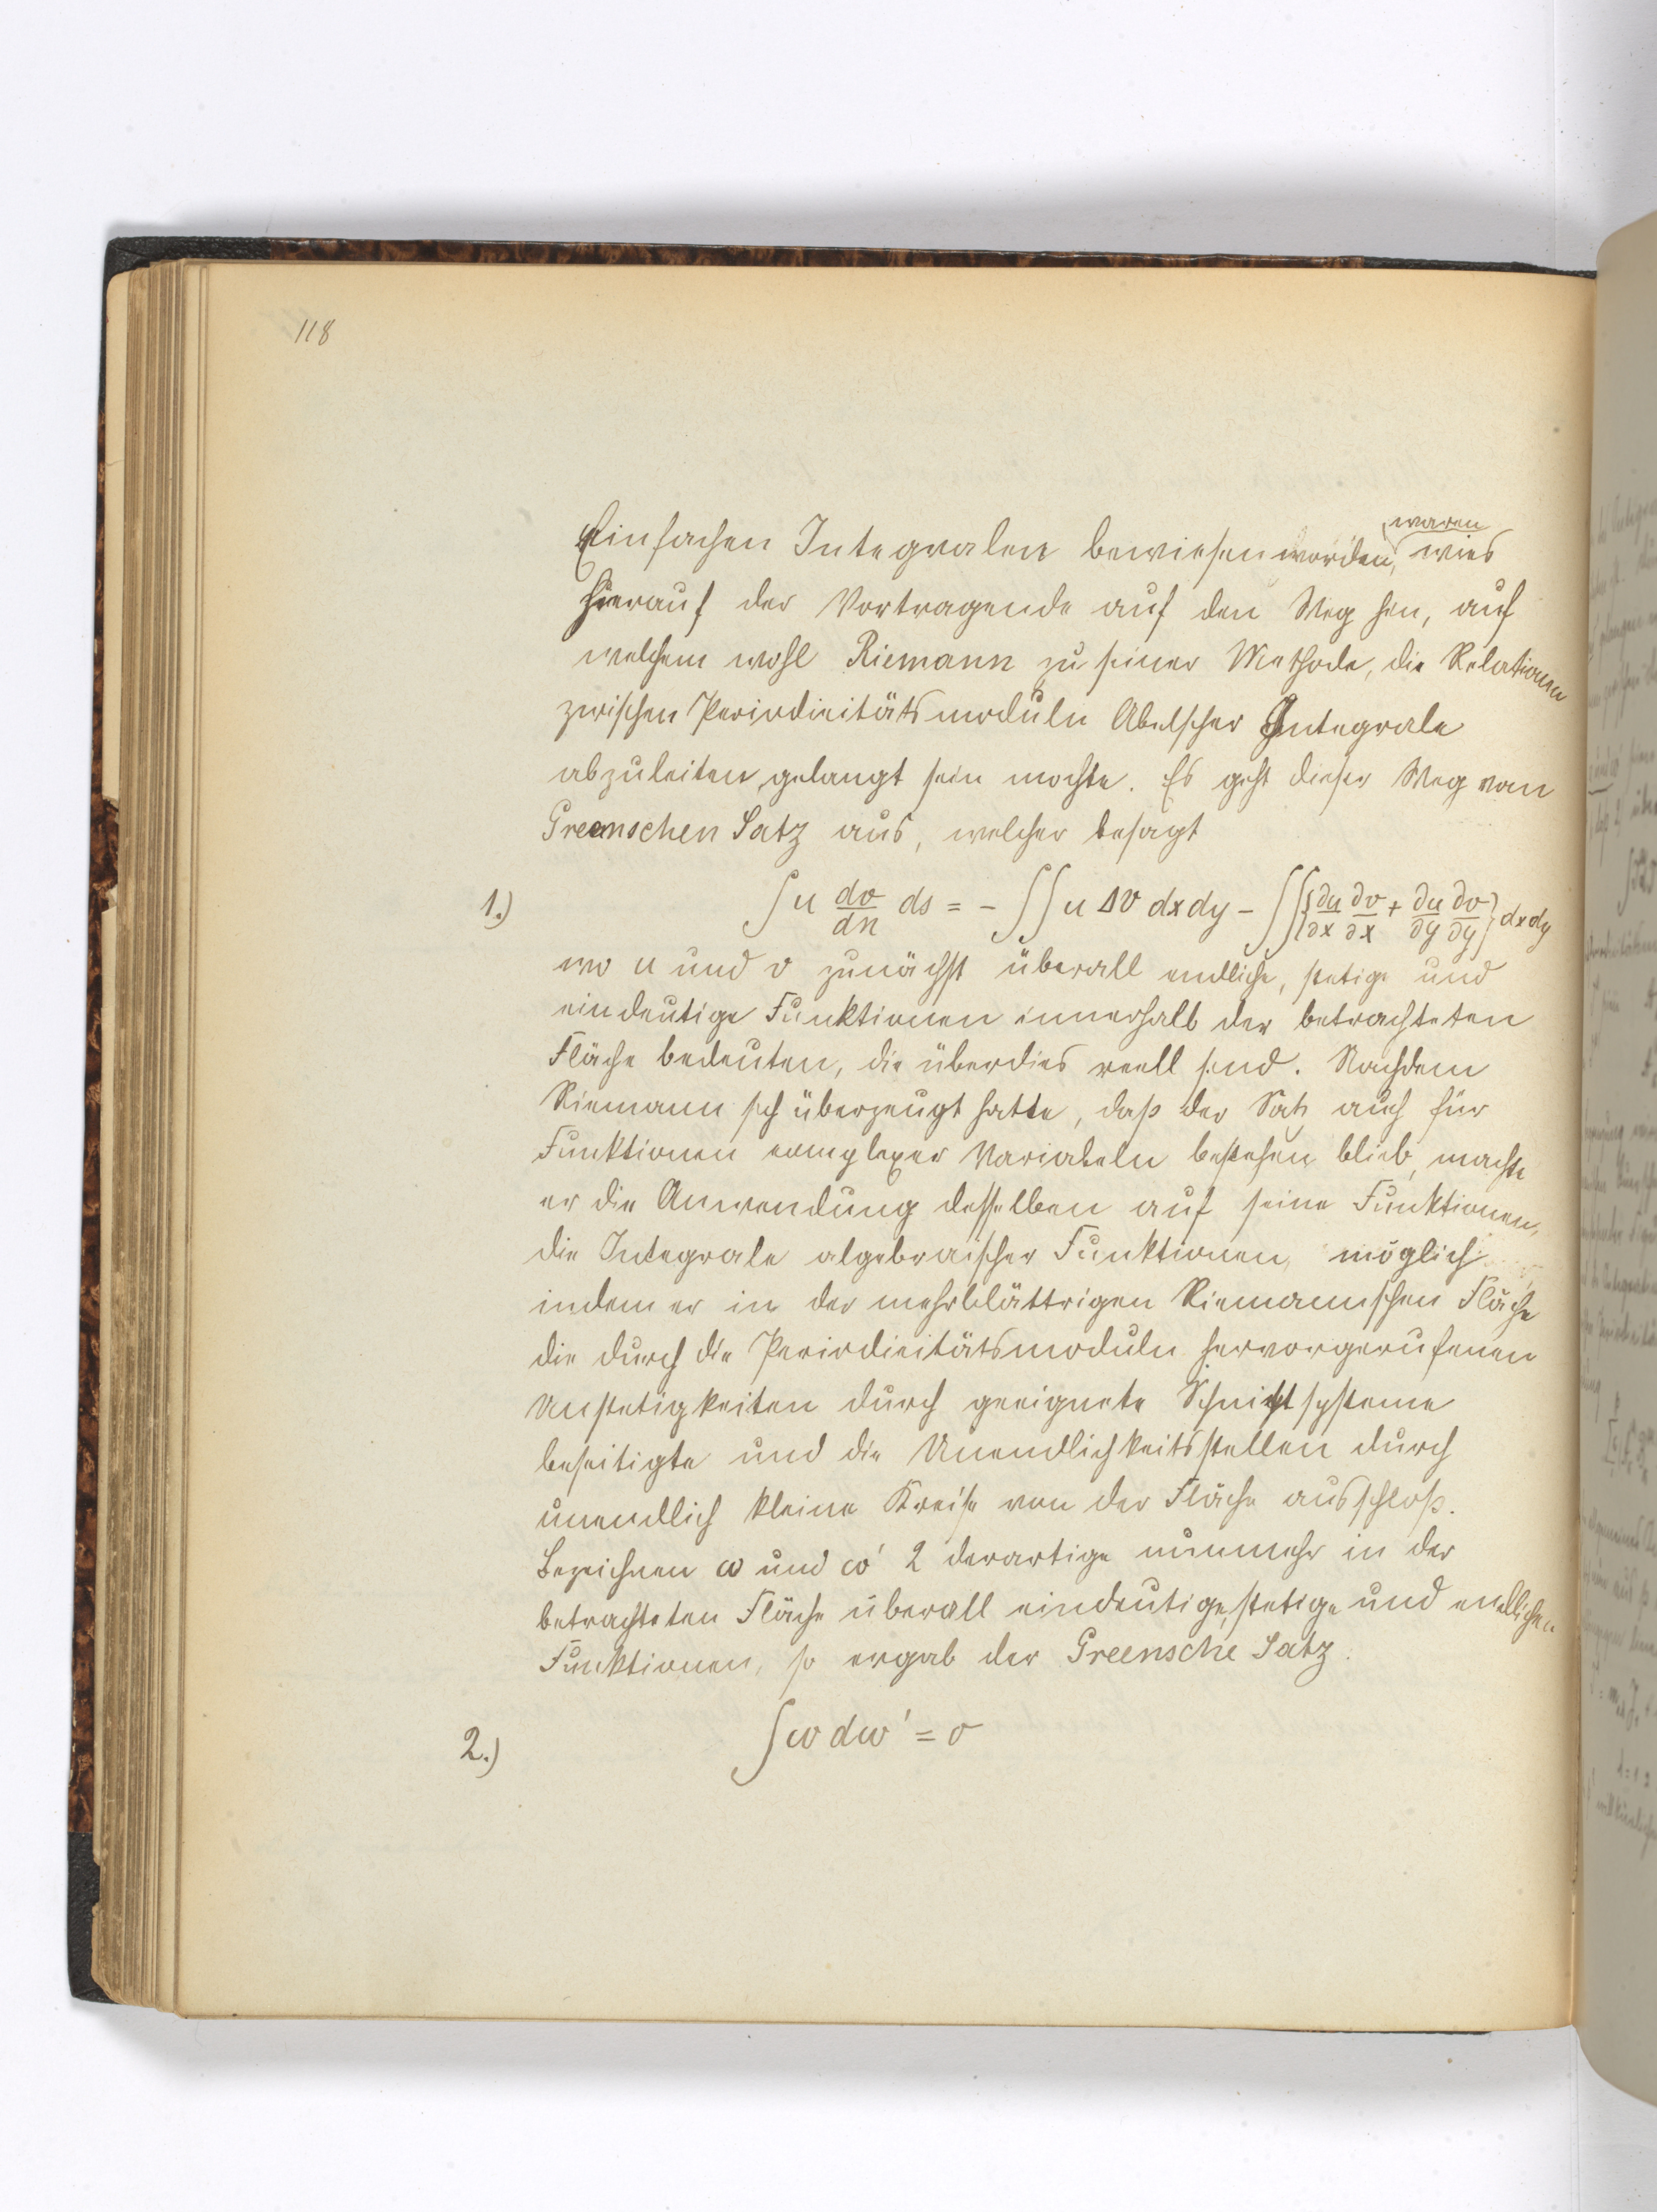 118
Einfachen Integralen bewiesen worden, waren wies
hierauf der Vortragende auf den Weg hin, auf
welchem wohl Riemann zu seiner Methode, die Relationen
zwischen Periodicitätsmoduln Abelscher Integrale
abzuleiten, gelangt sein mochte. Es geht dieser Weg von
Greenschen Satz aus, welcher besagt
1.) ∫ u dv/dn ds = - ∫∫ u Δv dx dy - ∫∫ {∂u/∂x ∂v/∂x + ∂u/∂y ∂v/∂y} dx dy
wo u und v zunächst überall endliche, stetige und
eindeutige Funktionen innerhalb der betrachteten
Fläche bedeuten, die überdies reell sind. Nachdem
Riemann sich überzeugt hatte, daß der Satz auch für
Funktionen complexer Variabeln bestehen blieb, machte
er die Anwendung desselben auf seine Funktionen,
die Integrale algebraischer Funktionen, möglich
indem er in der mehrblättrigen Riemannschen Fläche
die durch die Periodicitätsmoduln hervorgerufenen
Unstetigkeiten durch geeignete Schnittsysteme
beseitigte und die Unendlichkeitsstellen durch
unendlich kleine Kreise von der Fläche ausschloß.
Bezeichnen ω und ω' 2 derartige nunmehr in der
betrachteten Fläche überall eindeutige, stetige und endlichen
Funktionen, so ergab der Greensche Satz.
2.) ∫ ω dω' = 0